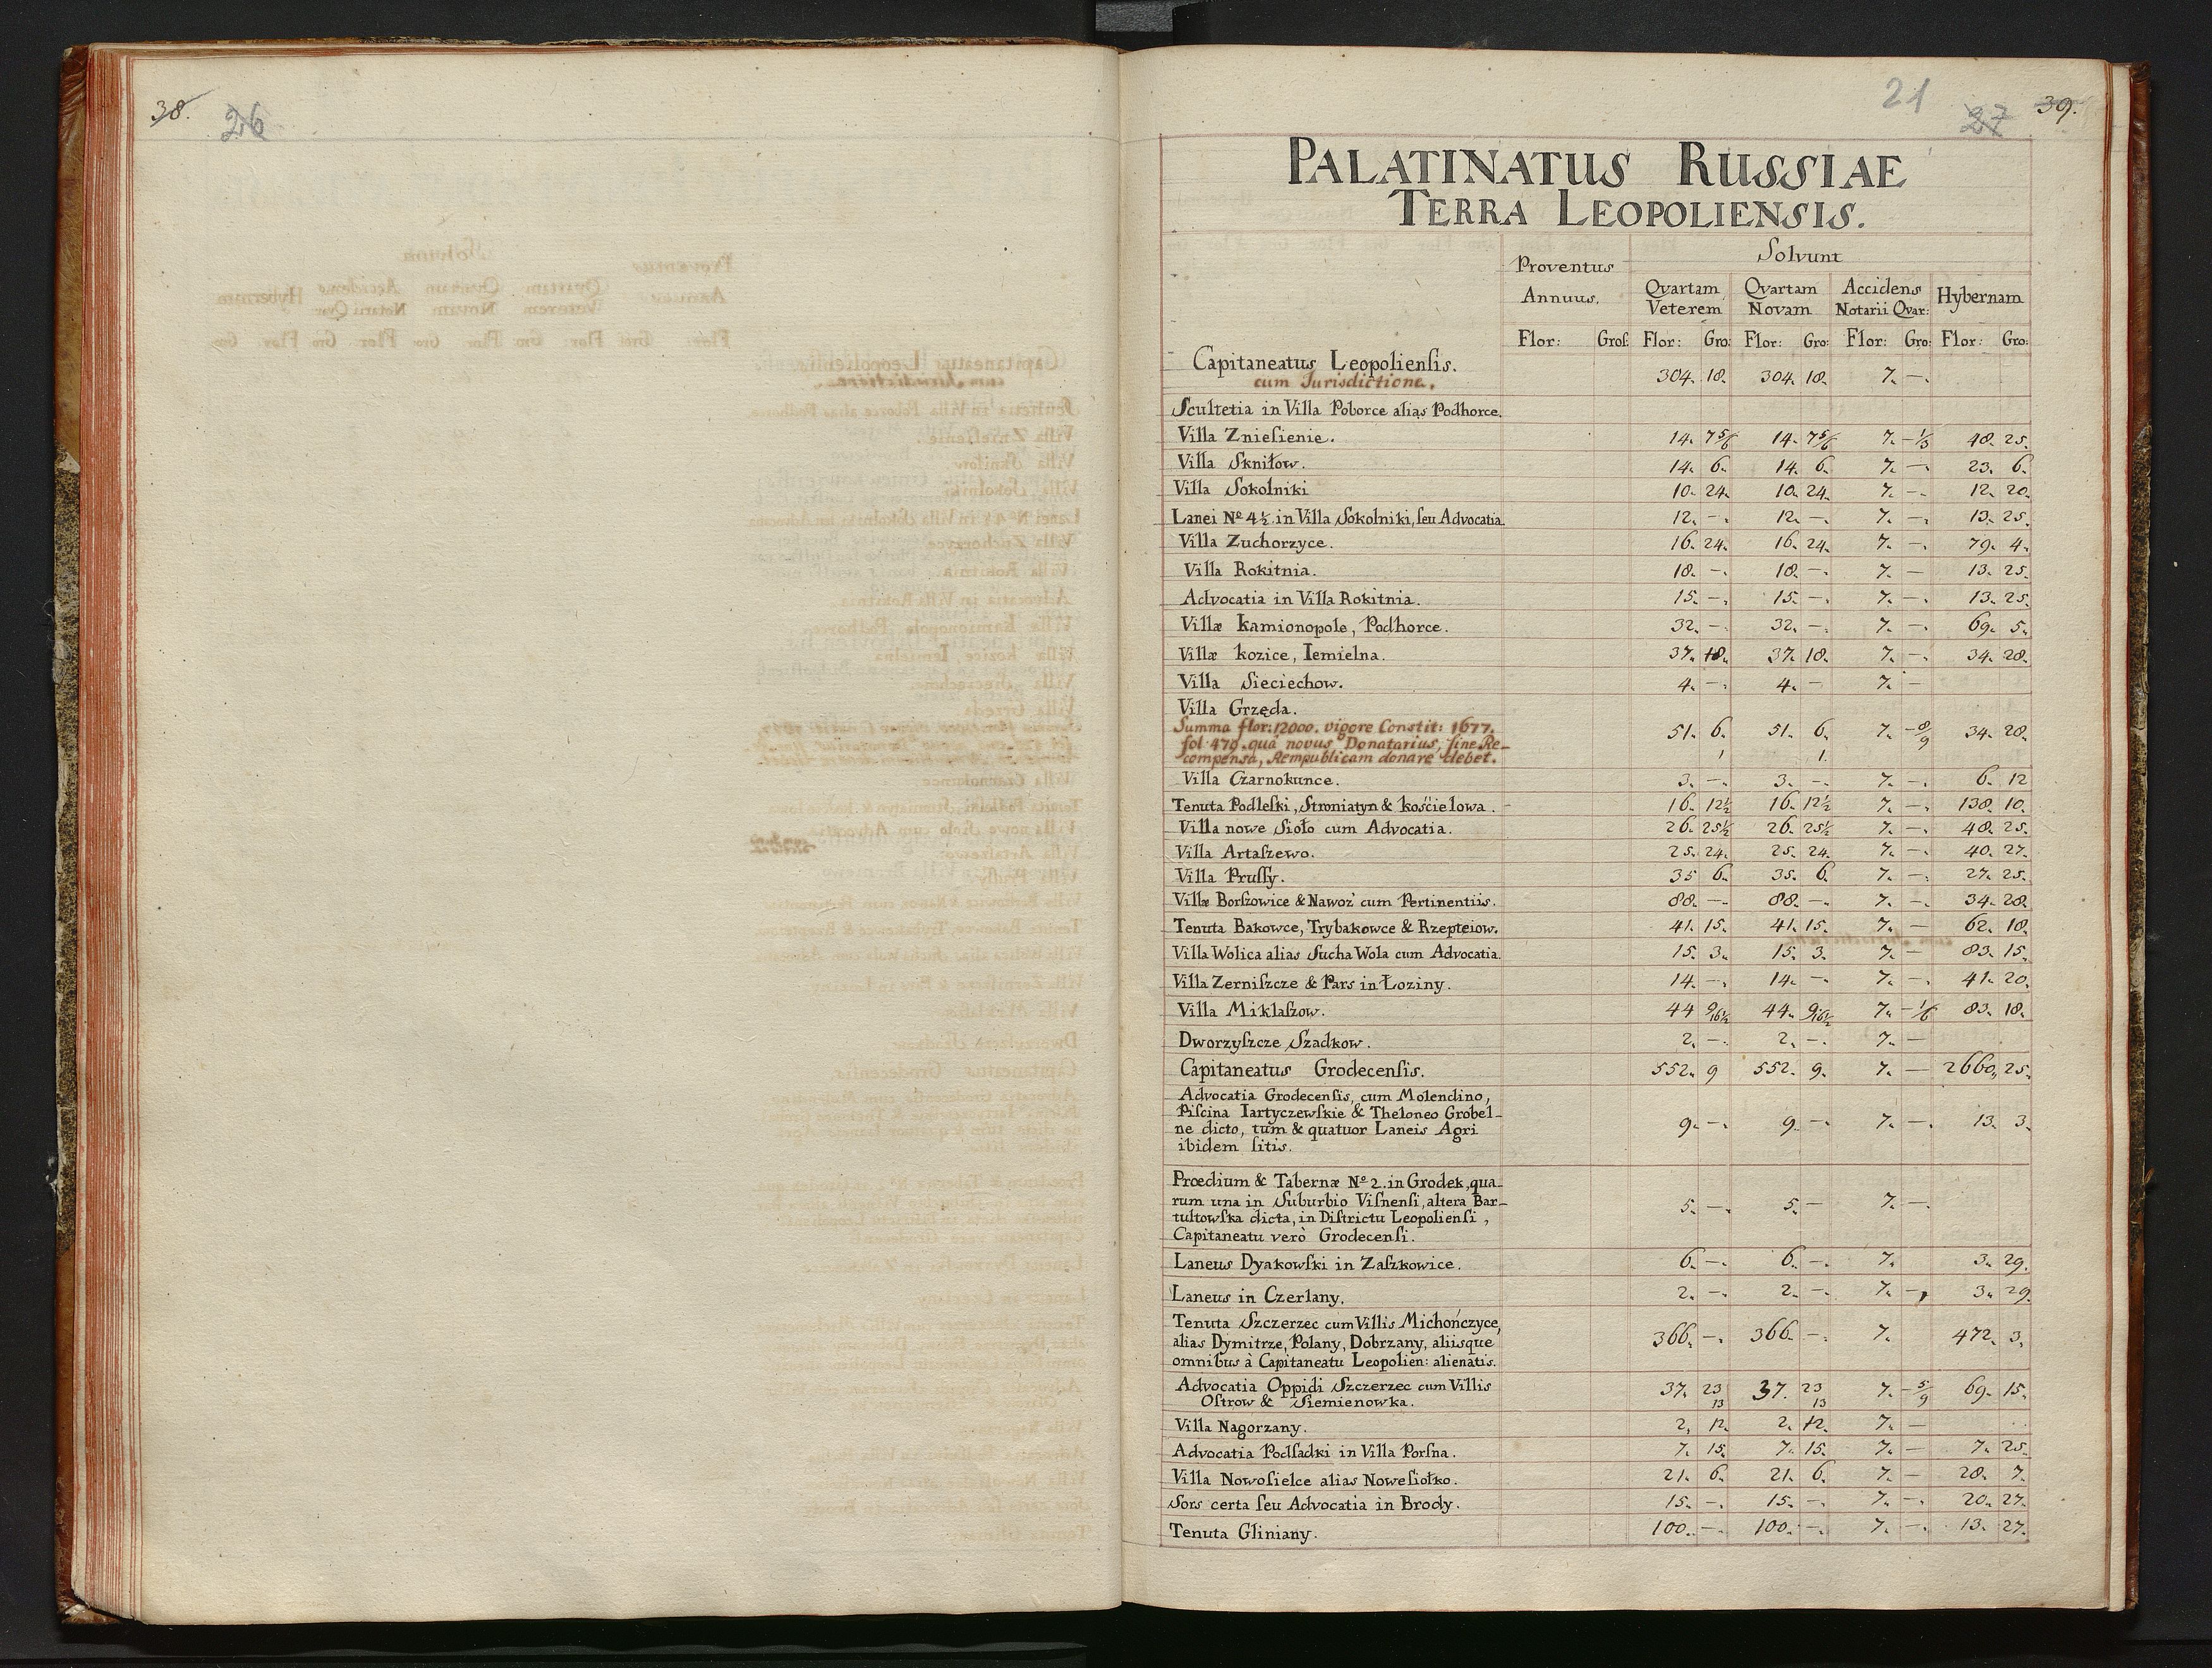 38.
26
21
27
39.
PALATINATUS RUSSIAE
TERRA LEOPOLIENSIS.
Proventus Annuus.
Solvunt
Qvartam Veterem
Qvartam Novam
Accidens Notarii Qvar:
Hybernam
Flor: Groſ: Flor: Gro: Flor: Gro: Flor: Gro: Flor: Gro:
Capitaneatus Leopolienſis.
cum Jurisdictione. 304. 18. 304. 18. 7. –.
Scultetia in Villa Poborce alias Podhorce.
Villa Znieſienie. 14. 7 5/6 14. 7 5/6 7. – 1/3 48. 25.
Villa Skniłow. 14. 6. 14. 6. 7. –. 23. 6.
Villa Sokolniki 10. 24. 10. 24. 7. –. 12. 20.
Lanei Nº 4½ in Villa Sokolniki, ſeu Advocatia 12. –. 12. –. 7. –. 13. 25.
Villa Zuchorzyce. 16. 24. 16. 24. 7. –. 79. 4.
Villa Rokitnia. 18. –. 18. –. 7. – 13. 25.
Advocatia in Villa Rokitnia. 15. –. 15. –. 7. –. 13. 25.
Villæ kamionopole, Podhorce. 32. –. 32. –. 7. –. 69. 5.
Villæ kozice, Iemielna. 37. 18. 37. 18. 7. –. 34. 28.
Villa Sieciechow. 4. –. 4. – 7. –
Villa Grzęda.
Summa flor: 12000. vigore Conſtit: 1677.
fol. 479. quá novus Donatarius, ſine Re-
compenſa, Rempublicam donare debet. 51. 6. 1 51. 6. 1. 7. – 8/9 34. 28.
Villa Czarnokunce. 3. –. 3. –. 7. –. 6. 12
Tenuta Podleſki, Stroniatyn & kościelowa. 16. 12½ 16. 12½ 7. –. 138. 10.
Villa nowe Sioło cum Advocatia. 26. 25½ 26. 25½ 7. –. 48. 25.
Villa Artaſzewo. 25. 24. 25. 24. 7. –. 40. 27.
Villa Pruſſy. 35 6. 35. 6. 7. –. 27. 25.
Villæ Borſzowice & Nawoź cum Pertinentiis. 88. –. 88. –. 7. –. 34. 28.
Tenuta Bakowce, Trybakowce & Rzepteiow. 41. 15. 41. 15. 7. – 62. 18.
Villa Wolica alias Sucha Wola cum Advocatia. 15. 3. 15. 3. 7. – 83. 15.
Villa Zerniſzcze & Pars in Łoziny. 14. –. 14. –. 7. –. 41. 20.
Villa Miklaſzow. 44 9/16½ 44. 9/16½ 7. – 1/6 83. 18.
Dworzyſzcze Szadkow. 2. –. 2. –. 7. –
Capitaneatus Grodecenſis. 552. 9 552. 9. 7. – 2660. 25.
Advocatia Grodecenſis, cum Molendino,
Piſcina Iartyczewſkie & Theloneo Grobel-
ne dicto, tùm & quatuor Laneis Agri
ibidem ſitis. 9. –. 9. –. 7. –. 13. 3.
Prœdium & Tabernæ Nº 2. in Grodek, qua-
rum una in Suburbio Viſnenſi, altera Bar-
tultowſka dicta, in Diſtrictu Leopolienſi,
Capitaneatu verò Grodecenſi. 5. –. 5. – 7. –.
Laneus Dyakowſki in Zaſzkowice. 6. –. 6. –. 7. 3. 29.
Laneus in Czerlany. 2. –. 2. –. 7. –, 3. 29.
Tenuta Szczerzec cum Villis Michończyce,
alias Dymitrze, Polany, Dobrzany, aliisque
omnibus à Capitaneatu Leopolien: alienatis. 366. –. 366. –. 7. 472. 3.
Advocatia Oppidi Szczerzec cum Villis
Oſtrow & Siemienowka. 37. 23 13 37. 23 13 7. – 5/9 69. 15.
Villa Nagorzany. 2. 12. 2. 12. 7. –
Advocatia Podſadki in Villa Porſna. 7. 15. 7. 15. 7. – 7. 25.
Villa Nowoſielce alias Noweſiołko. 21. 6. 21. 6. 7. – 28. 7.
Sors certa ſeu Advocatia in Brody. 15. –. 15. –. 7. –. 20. 27.
Tenuta Gliniany. 100. –. 100. –. 7. –. 13. 27.